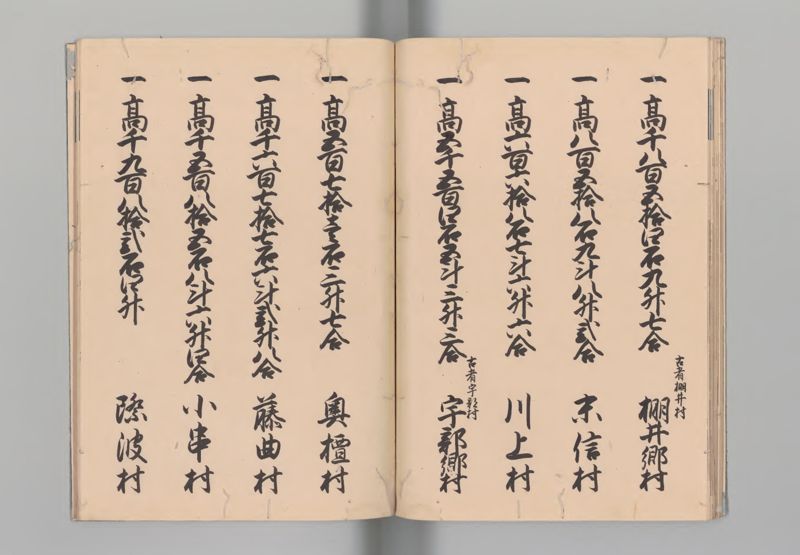 一高千八百五拾四石九升七合
古者棚井村
棚井郷村
一高八百五拾八石九斗八升弐合
末信村
一高六百六拾八石七斗六升六合
川上村
一高五千五百四石五斗三升三合
古者宇部村
宇部郷村
一高五百七拾壱石三升七合
奥檀村
一高千六百七拾七石六斗弐升八合
藤曲村
一高千五百八拾五石八斗六升四合
小串村
一高千九百八拾弐石四升
際波村